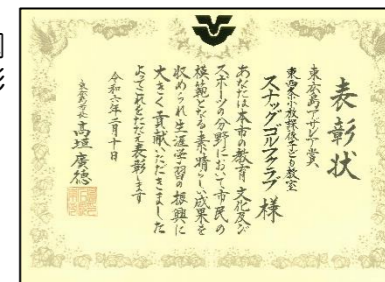 表彰状
東広島アザレア賞
東西条小放課後子ども教室
スナッグゴルフクラブ 様
あなたは本市の教育 文化及び
スポーツの分野において市民の
模範となる素晴らしい成果を
収められ生涯学習の振興に
大きく貢献いただきました
よってこれをたたえ表彰します
令和六年二月十日
東広島市長 高垣廣德